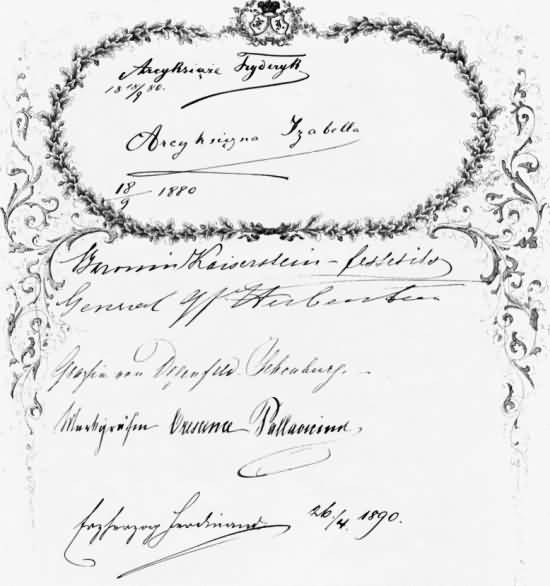 Arcyksiąże Fryderyk
18 18/9 80.
Arcyksiężna Izabella
18/9 1880
Baronin Kaiserstein-
General Gf Herberstein
Gräfin von Degenfeld Schonburg.
Markgräfin Crescence Pallavicini
Erzherzog Ferdinand 26/4. 1890.